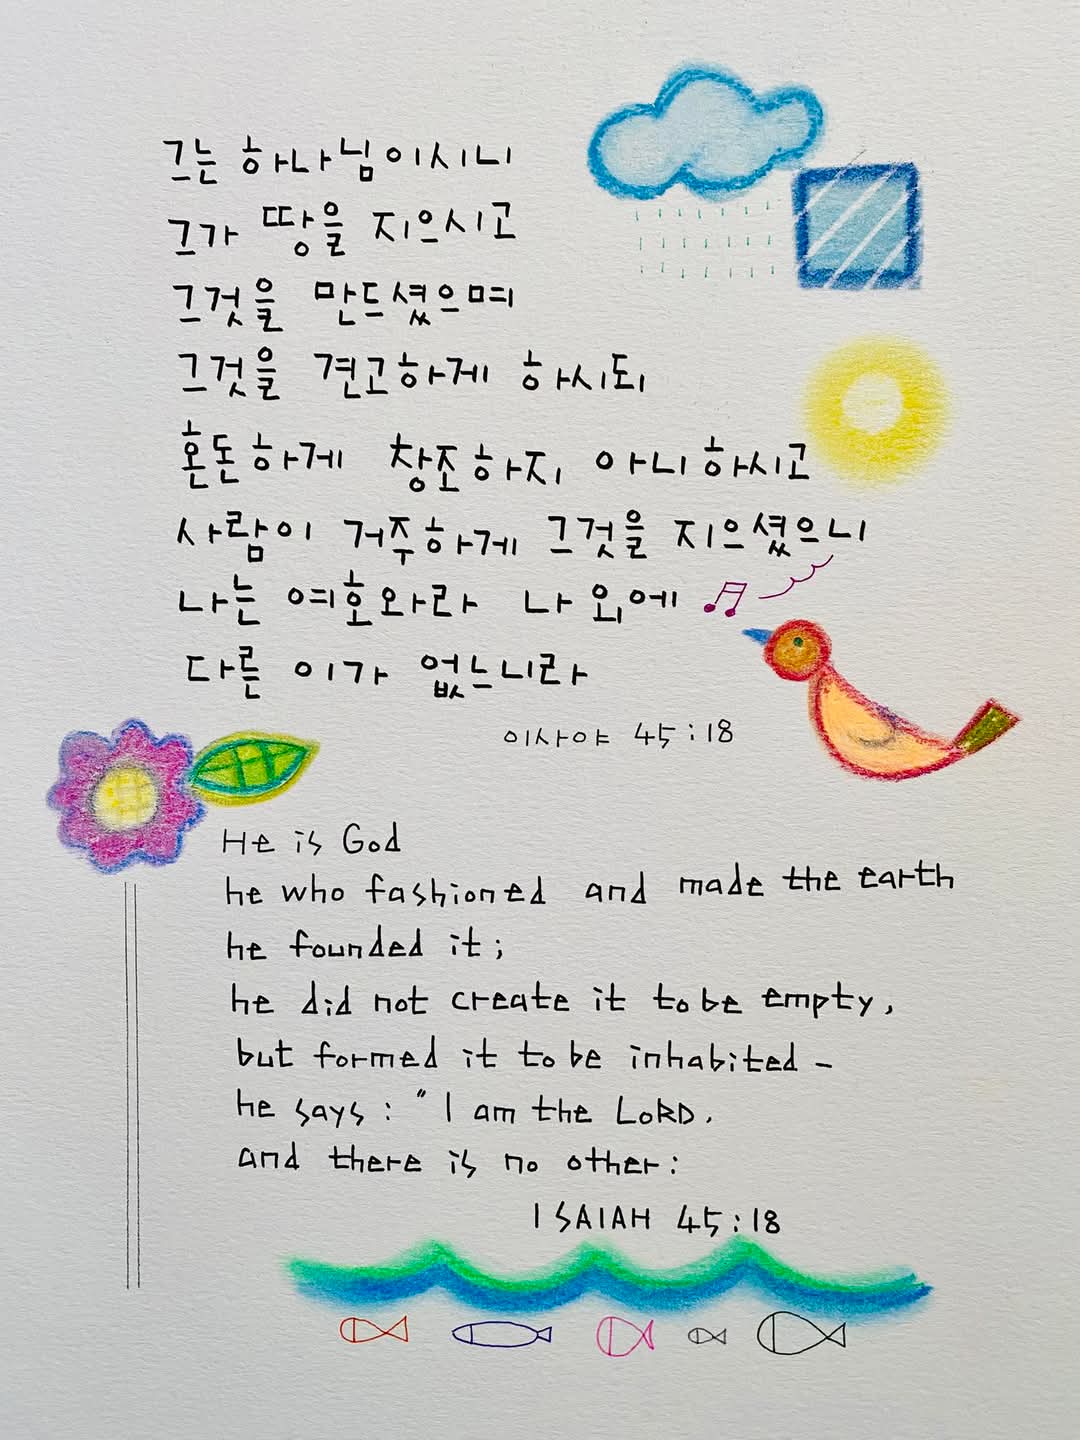 그는 하나님이시니
그가 땅을 지으시고
그것을 만드셨으며
그것을 견고하게 하시되
혼돈하게 창조하지 아니하시고
사람이 거주하게 그것을 지으셨으니
나는 여호와라 나 외에
다른 이가 없느니라
이사야 45:18
He is God
he who fashioned and made the earth
he founded it;
he did not create it to be empty,
but formed it to be inhabited –
he says: "I am the LORD.
and there is no other:
ISAIAH 45:18